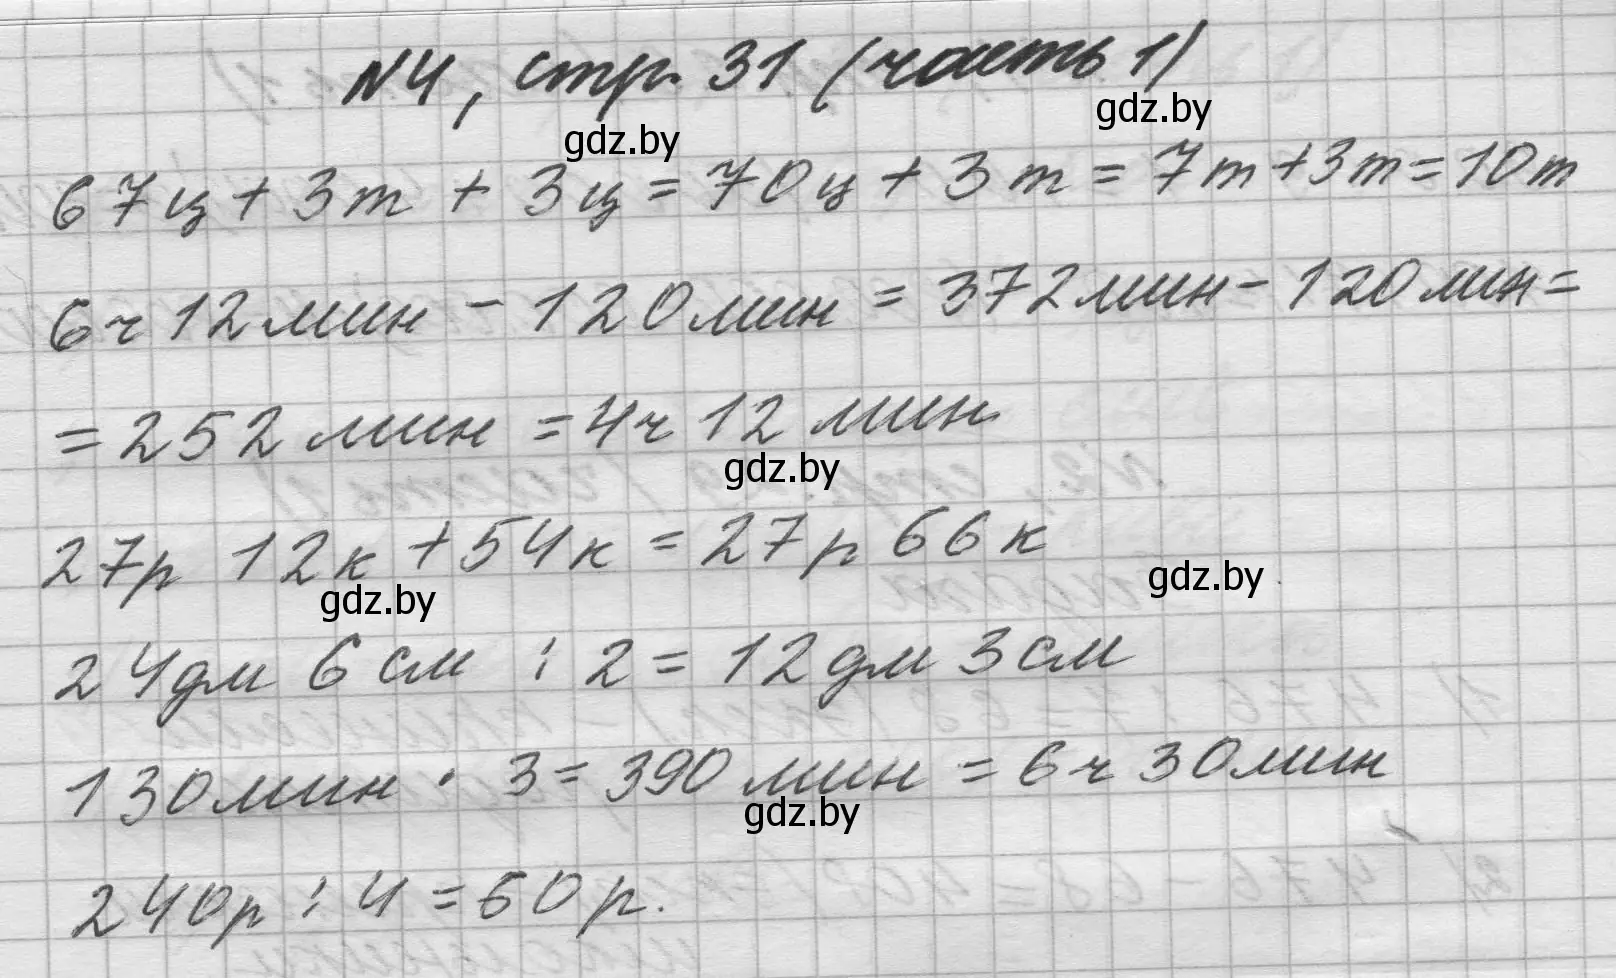 №4, стр. 31 (часть 1)
gdz.by
gdz.by
67ц + 3т + 3ц = 70ц + 3т = 7т + 3т = 10т
6ч 12мин - 120мин = 372мин - 120мин =
= 252 мин = 4ч 12 мин
gdz.by
27р 12к + 54к = 27р 66к
gdz.by
gdz.by
24дм 6см : 2 = 12дм 3см
130мин · 3 = 390мин = 6ч 30мин
gdz.by
240р : 4 = 60р.